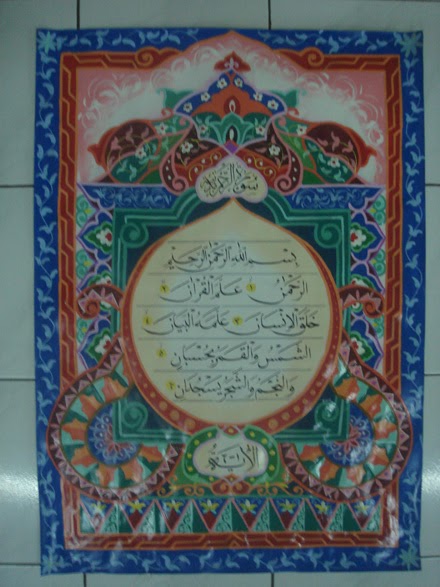 بسم الله الرحمن الرحيم
الرحمن ۱ علم القرآن ۲
خلق الإنسان ۳ علمه البيان ٤
الشمس والقمر بحسبان ٥
والنجم والشجر يسجدان ٦